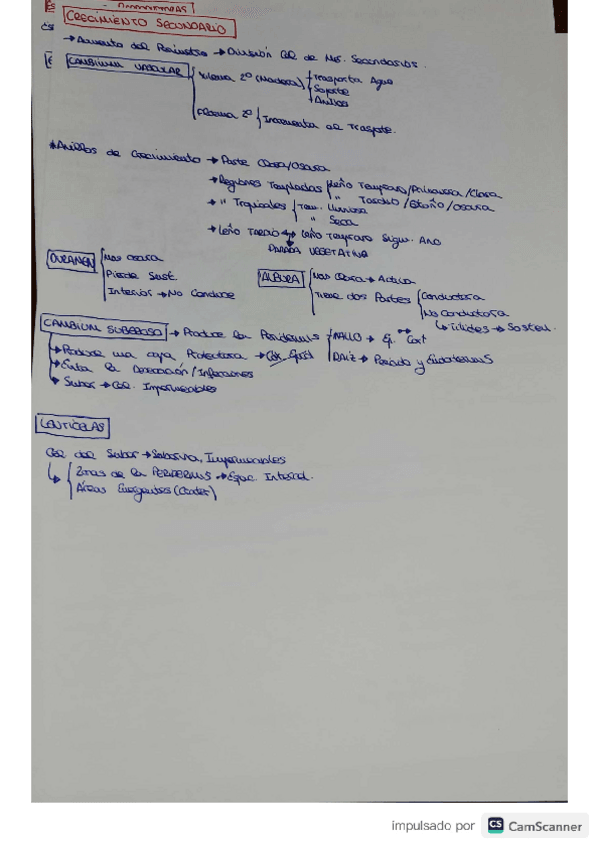 CRECIMIENTO SECUNDARIO
→ Aumento del → División Cel de Mer. Secundarios.
CAMBIUM VASCULAR
Xilema 2º (Madera)
Transporta Agua
Soporte
Anillos
Floema 2º
Incrementa el Trasporte.
*Anillos de Crecimiento → Parte Clara/Oscura
→ Regiones Templadas
Leño Temprano/Primavera/Clara
" Tardío/Otoño/Oscura
→ " Tropicales
Tem. Lluviosa
" Seca
→ Leño Tardío Leño Temprano Sigu. Ano
PARADA VEGETATIVA
DURAMEN
Mas oscura
Pierde
Interior → No Conduce
ALBURA
Mas Clara → Activa
Tiene dos Partes
Conductora
No Conductora
↳ Tílides → Sosten.
CAMBIUM SUBEROSO → Produce la Peridermis
TALLO → Ep. Cort
RAIZ → Periciclo y
→ Produce una capa Protectora →
→ Evita la Desecación/Infecciones
→ Suber → Cel. Impermeables
LENTICELAS
Cel del Suber → Impermeables
↳ Zonas de la PERIDERMIS → Espac.
Áreas
impulsado por CS CamScanner